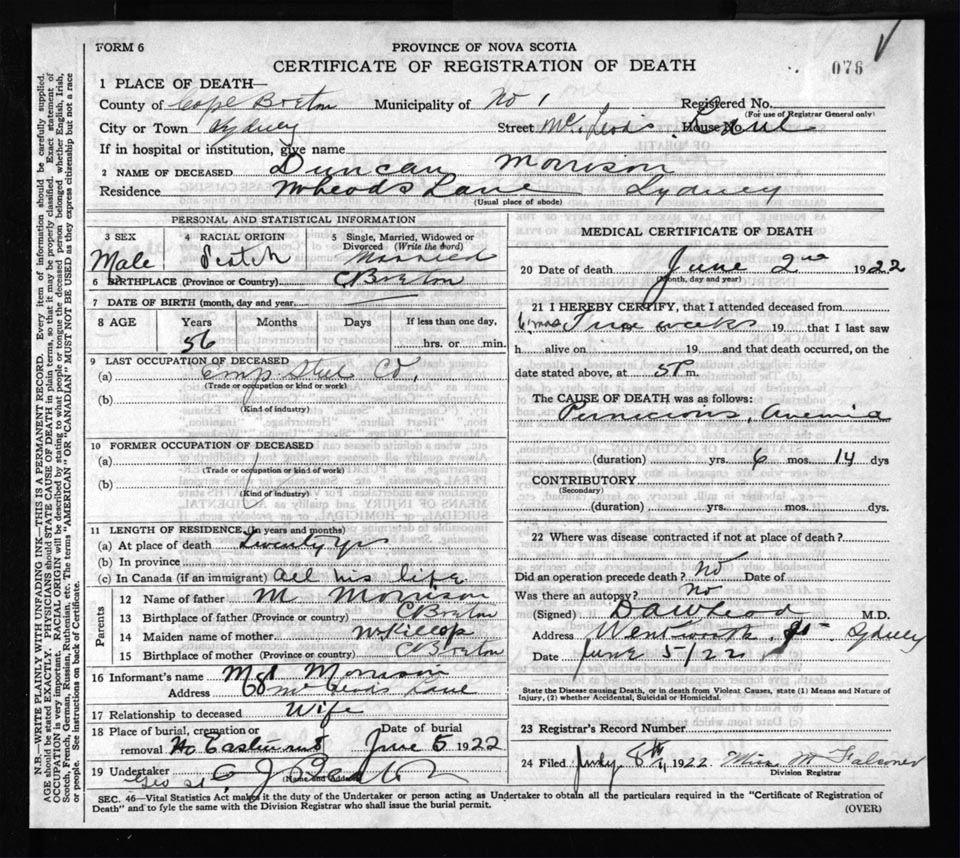 FORM 6
PROVINCE OF NOVA SCOTIA
CERTIFICATE OF REGISTRATION OF DEATH
076
1 PLACE OF DEATH—
County of Cape Breton Municipality of No 1 Registered No.
(For use of Registrar General only)
City or Town Sydney Street McLeod's House No. Lane
If in hospital or institution, give name
2 NAME OF DECEASED Duncan Morrison
Residence McLeods Lane Sydney
(Usual place of abode)
PERSONAL AND STATISTICAL INFORMATION
3 SEX
Male
4 RACIAL ORIGIN
Scotch
5 Single, Married, Widowed or Divorced (Write the word)
Married
6 BIRTHPLACE (Province or Country) C Breton
7 DATE OF BIRTH (month, day and year)
8 AGE Years Months Days If less than one day,
56 hrs. or min.
9 LAST OCCUPATION OF DECEASED
(a) Emp Steel Co,
(Trade or occupation or kind or work)
(b)
(Kind of industry)
10 FORMER OCCUPATION OF DECEASED
(a)
(Trade or occupation or kind of work)
(b)
(Kind of industry)
11 LENGTH OF RESIDENCE (In years and months)
(a) At place of death Twenty yrs
(b) In province
(c) In Canada (if an immigrant) all his life
Parents
12 Name of father M Morrison
13 Birthplace of father (Province or country) C Breton
14 Maiden name of mother McKillop
15 Birthplace of mother (Province or country) C Breton
16 Informant's name Morrison
Address 60 McLeods Lane
17 Relationship to deceased Wife
18 Place of burial, cremation or removal Date of burial
June 5 1922
19 Undertaker
(Name and Address)
MEDICAL CERTIFICATE OF DEATH
20 Date of death June 2nd 1922
(Month, day and year)
21 I HEREBY CERTIFY, that I attended deceased from
6 mos Two weeks 19 that I last saw
h alive on 19 and that death occurred, on the
date stated above, at 5P m.
The CAUSE OF DEATH was as follows:
Pernicious, Anemia
(duration) yrs. 6 mos. 14 dys
CONTRIBUTORY
(Secondary)
(duration) yrs. mos. dys.
22 Where was disease contracted if not at place of death?
Did an operation precede death? No Date of
Was there an autopsy? No
(Signed) D A McLeod M.D.
Address Wentworth St Sydney
Date June 5/22
State the Disease causing Death, or in death from Violent Causes, state (1) Means and Nature of
Injury, (2) whether Accidental, Suicidal or Homicidal.
23 Registrar's Record Number
24 Filed July 8th, 1922 Miss M Falconer
Division Registrar
SEC. 46—Vital Statistics Act makes it the duty of the Undertaker or person acting as Undertaker to obtain all the particulars required in the "Certificate of Registration of
Death" and to fyle the same with the Division Registrar who shall issue the burial permit.
(OVER)
N.B.—WRITE PLAINLY WITH UNFADING INK—THIS IS A PERMANENT RECORD. Every item of information should be carefully supplied.
AGE should be stated EXACTLY. PHYSICIANS should STATE CAUSE OF DEATH in plain terms, so that it may be properly classified. Exact statement of
OCCUPATION is very important. RACIAL ORIGIN will be described by stating to what people or tongue the deceased person belonged whether English, Irish,
Scotch, French, German, Russian, Ruthenian, etc. The terms "AMERICAN" OR "CANADIAN" MUST NOT BE USED as they express citizenship but not a race
or people. See instructions on back of Certificate.